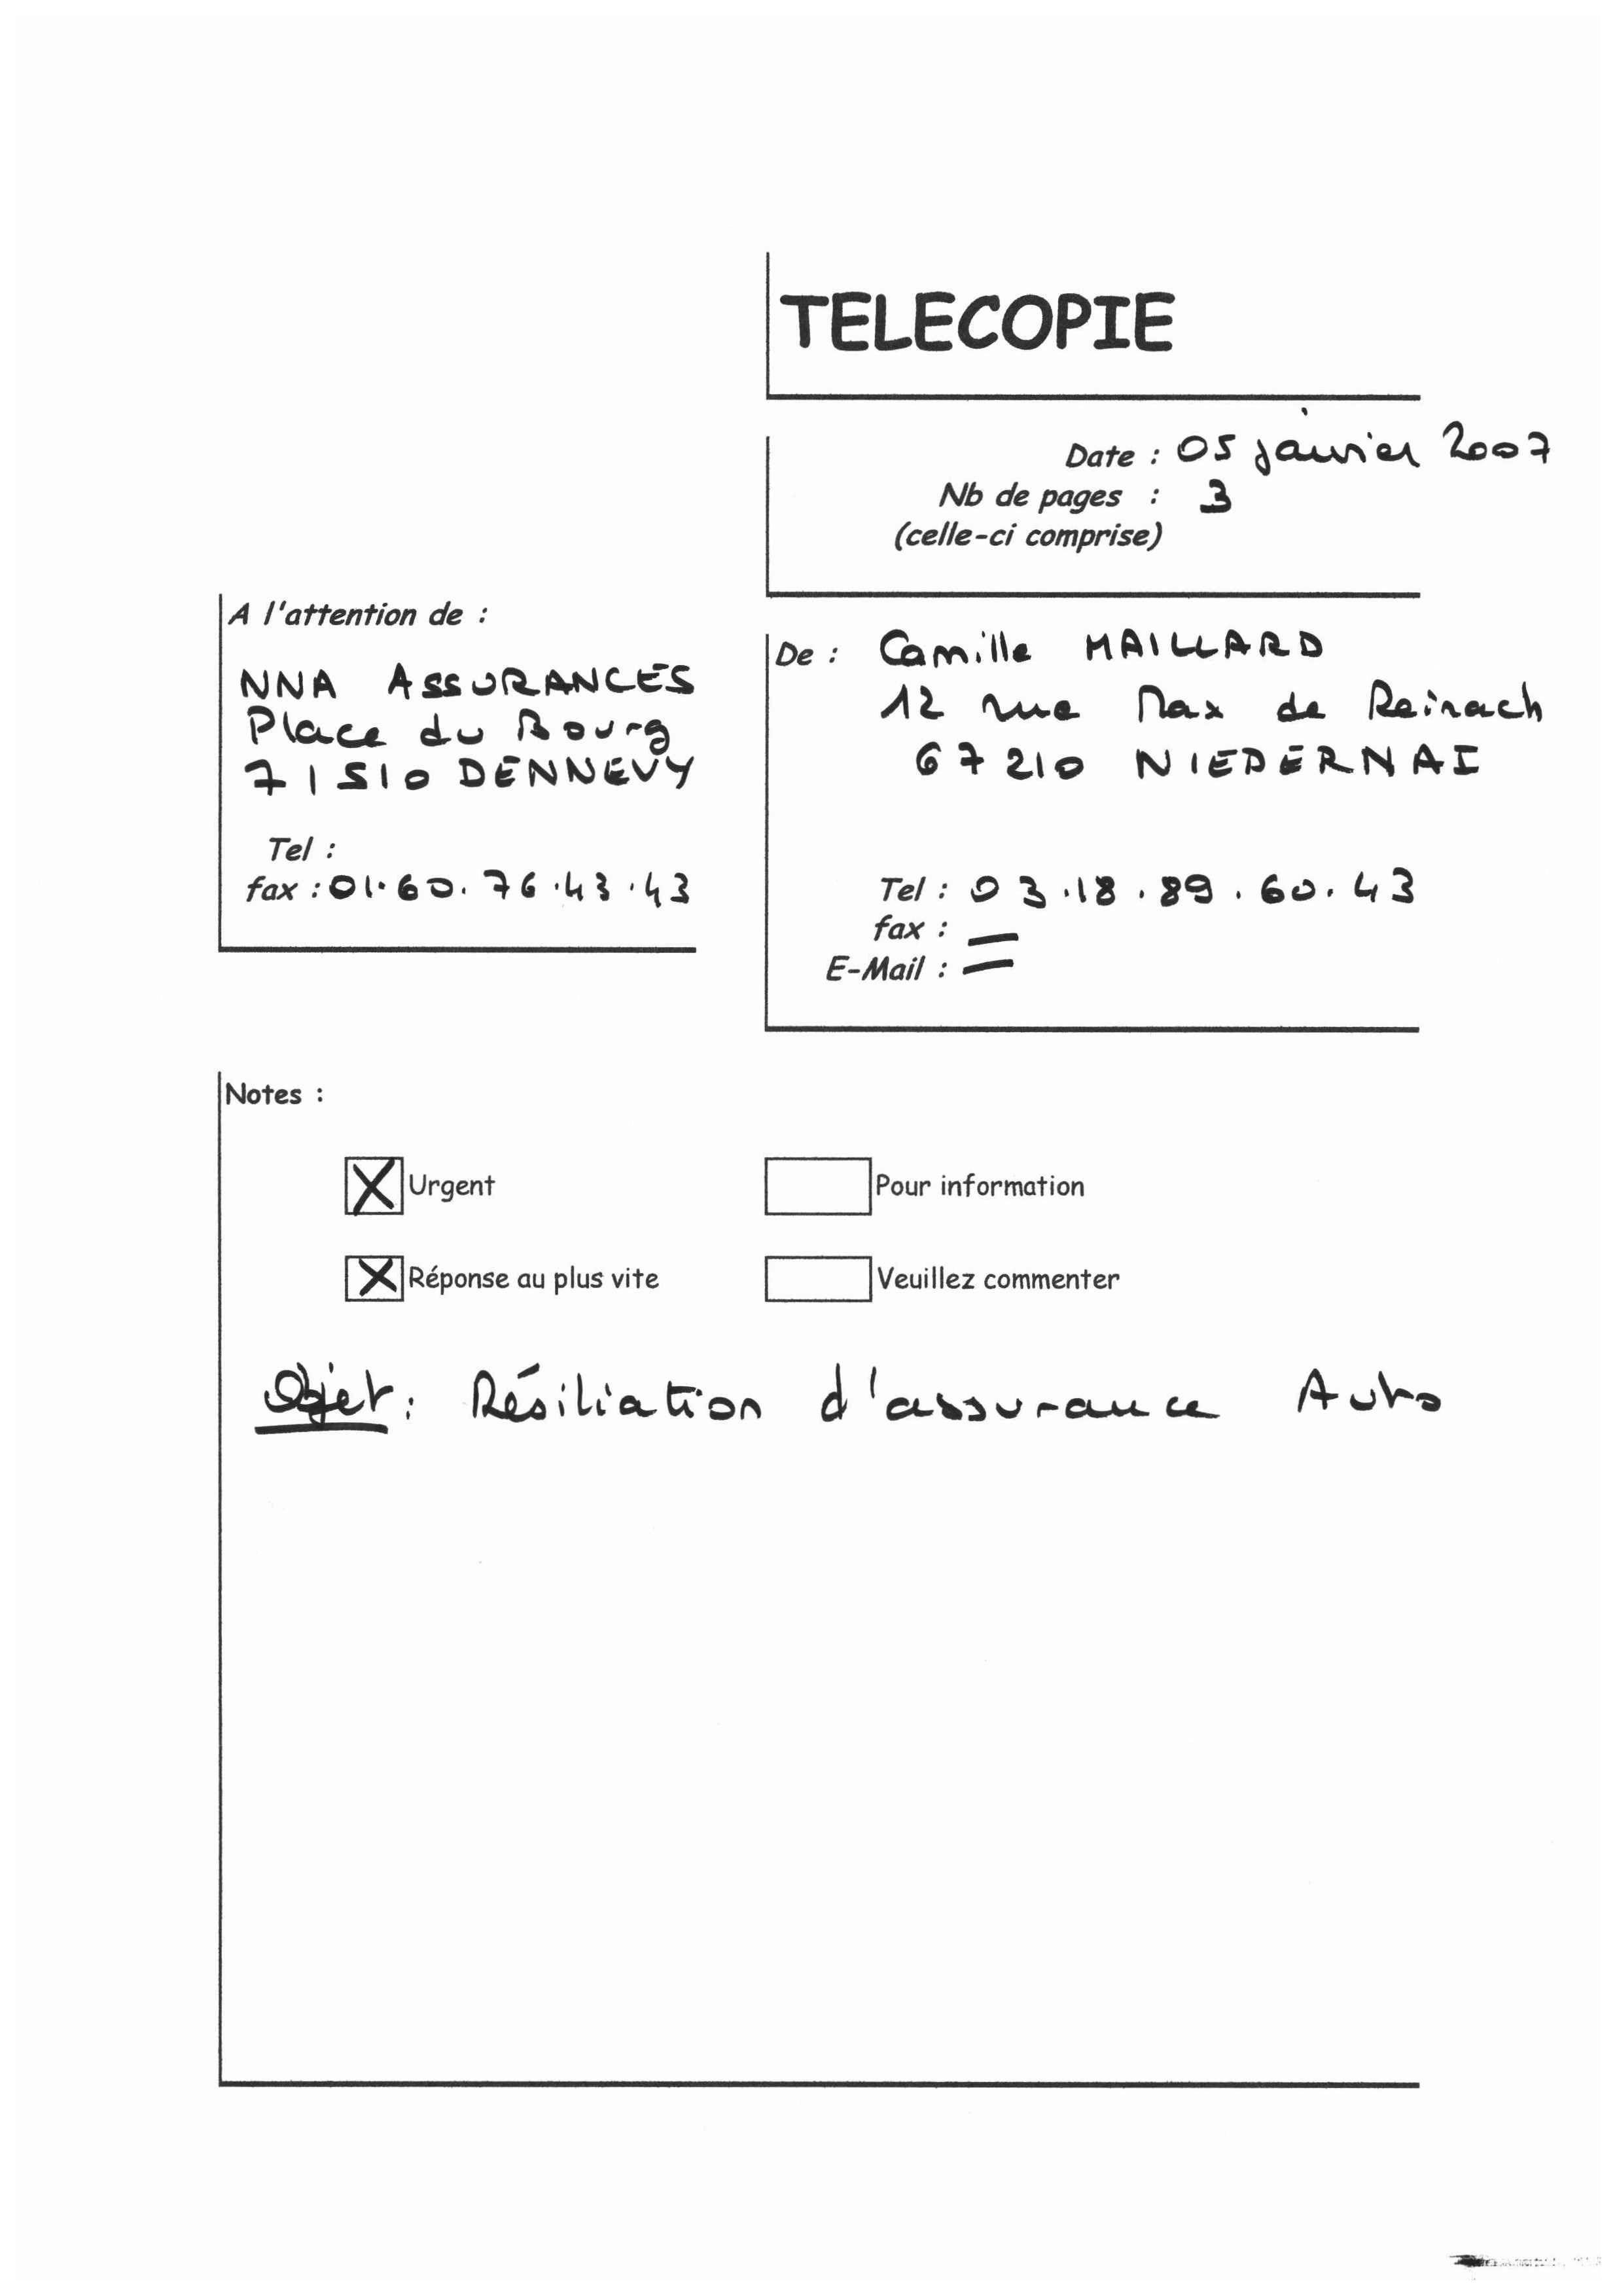 TELECOPIE
Date : 05 janvier 2007
Nb de pages : 3
(celle-ci comprise)
A l'attention de :
NNA ASSURANCES
Place du Bourg
71510 DENNEVY
Tel :
fax : 01.60.76.43.43
De : Camille MAILLARD
12 rue Max de Reinach
67210 NIEDERNAI
Tel : 03.18.89.60.43
fax : —
E-Mail : —
Notes :
X Urgent
Pour information
X Réponse au plus vite
Veuillez commenter
Objet : Résiliation d'assurance Auto